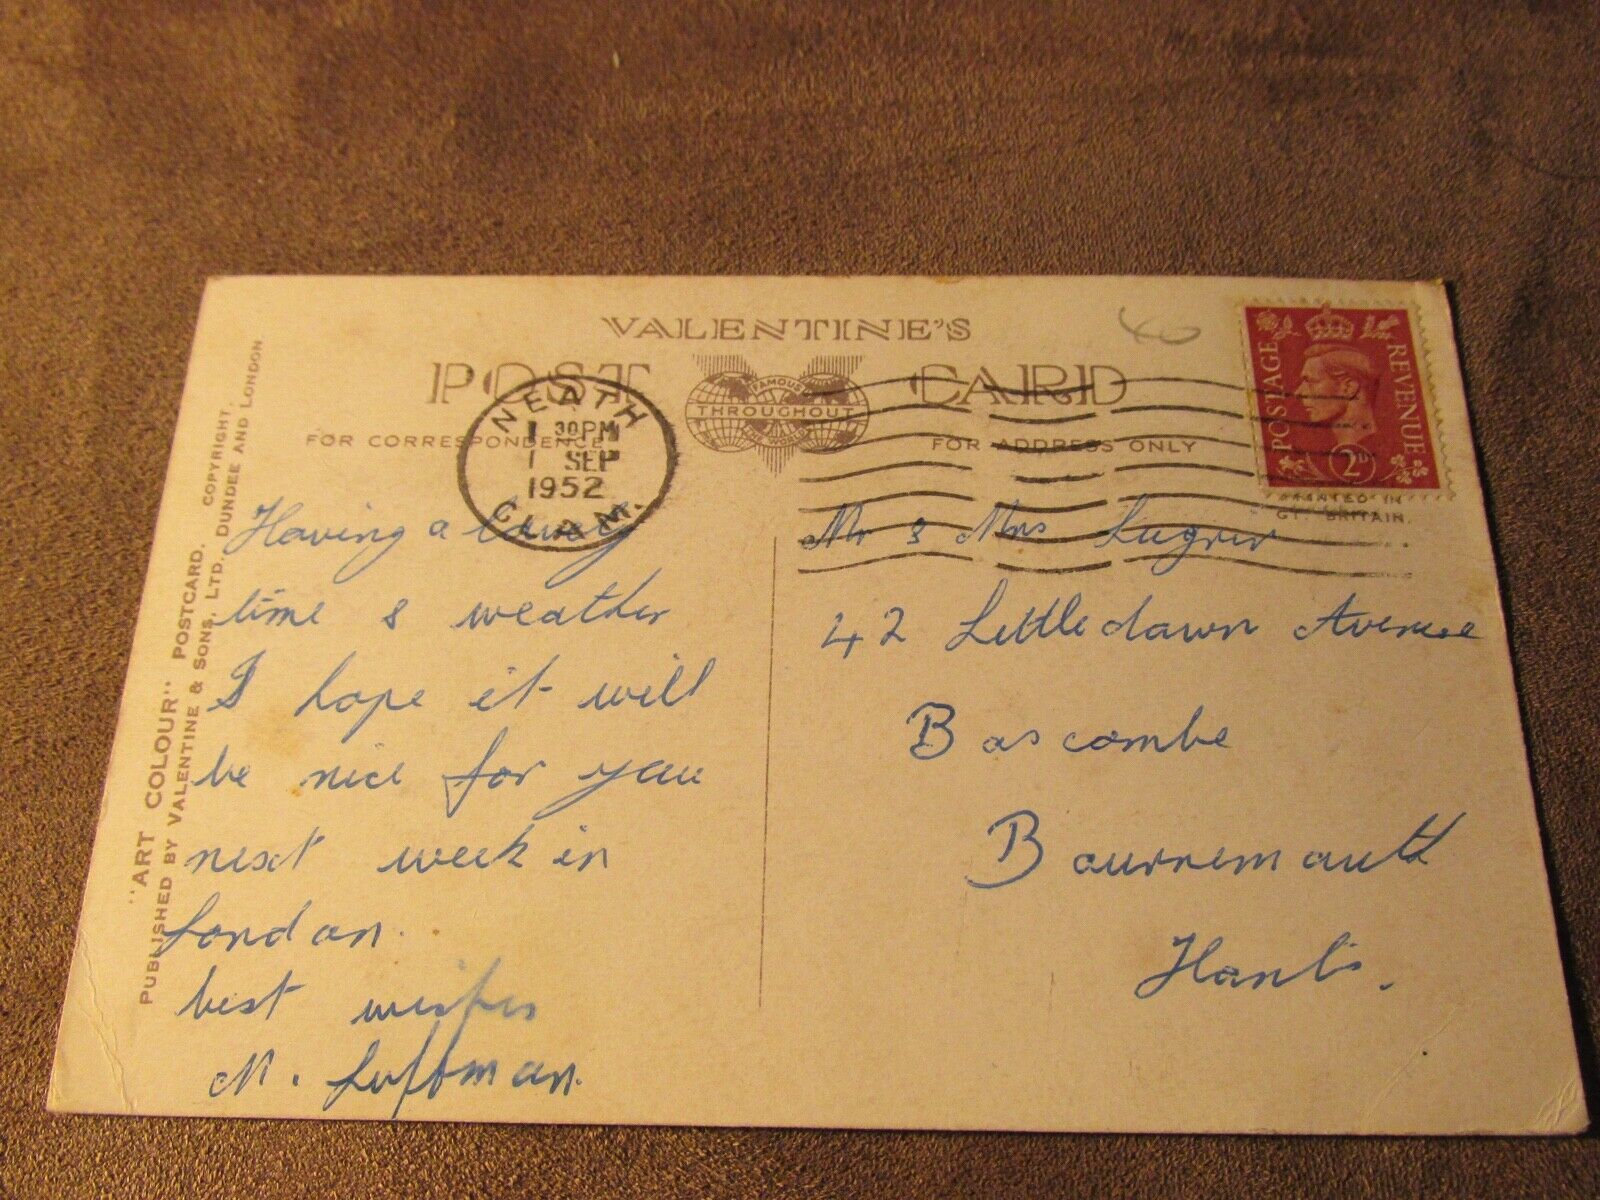 VALENTINE'S
POST CARD
FAMOUS
THROUGHOUT
THE WORLD
FOR CORRESPONDENCE
FOR ADDRESS ONLY
NEATH
1 30 PM
1 SEP
1952
GLAM.
POSTAGE
REVENUE
2D
PRINTED IN
GT. BRITAIN.
"ART COLOUR" POSTCARD. COPYRIGHT.
PUBLISHED BY VALENTINE & SONS, LTD. DUNDEE AND LONDON
Having a lovely
time & weather
I hope it will
be nice for you
next week in
London.
best wishes
M. Luffman.
Mr & Mrs
42 Littledown Avenue
Boscombe
Bournemouth
Hants.